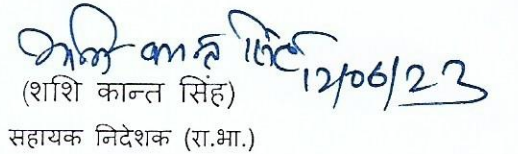 शशि कान्त सिंह 12/06/23
(शशि कान्त सिंह)
सहायक निदेशक (रा.भा.)